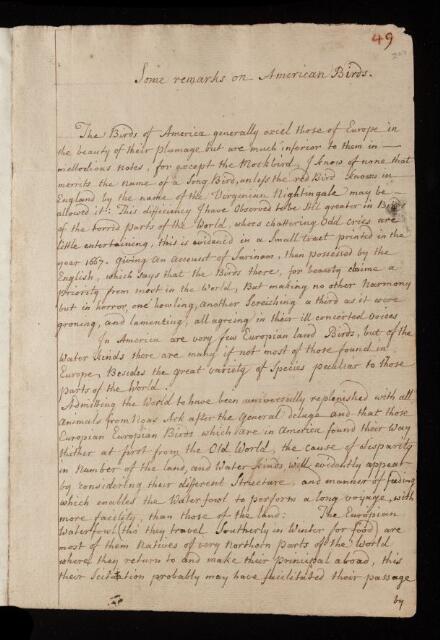 49
Some remarks on American Birds.
The Birds of America generally excel those of Europe in
the beauty of their plumage but are much inferior to them in
mellodious notes, for except the Mock bird, I know of none that
merrits the name of a Song Bird, unless the red Bird known in
England by the name of the Verginian Nightingale may be
allowed it: This difficiency I have Observed to be still greater in
of the torrid parts of the World, whose chattering Odd cries are
little entertaining, this is evidenced in a Small tract printed in the
year 1667. Giving an Account of Surinam, then possessed by the
English, which says that the Birds there, for beauty claime a
Priority from most in the World, But making no other Harmony
but in horror, one howling, another screiching a third as it were
groning, and lamenting, all agreing in their ill concerted Voices
In America are very few Europian land Birds, but of the
Water kinds there are many if not most of those found in
Europe, Besides the great variety of Species peculiar to those
parts of the World.
Admitting the World to have been universally replenished with all
Animals from Noas Ark after the General deluge and that those
Europian Europian Birds which are in America found their Way
thither at first from the Old World, the cause of disparity
in Number of the land, and Water kinds will evidently appear
by considering their different Structure, and manner of feeding
which enables the Water fowl to perform a long voyage, with
more facility, than those of the land: The Europian
Waterfowl (tho they travel Southerly in Winter for food) are
most of them Natives of very Northern parts of the World
where they return to and make their principal abroad, this
their Scituation probably may have facilitated their passage
by